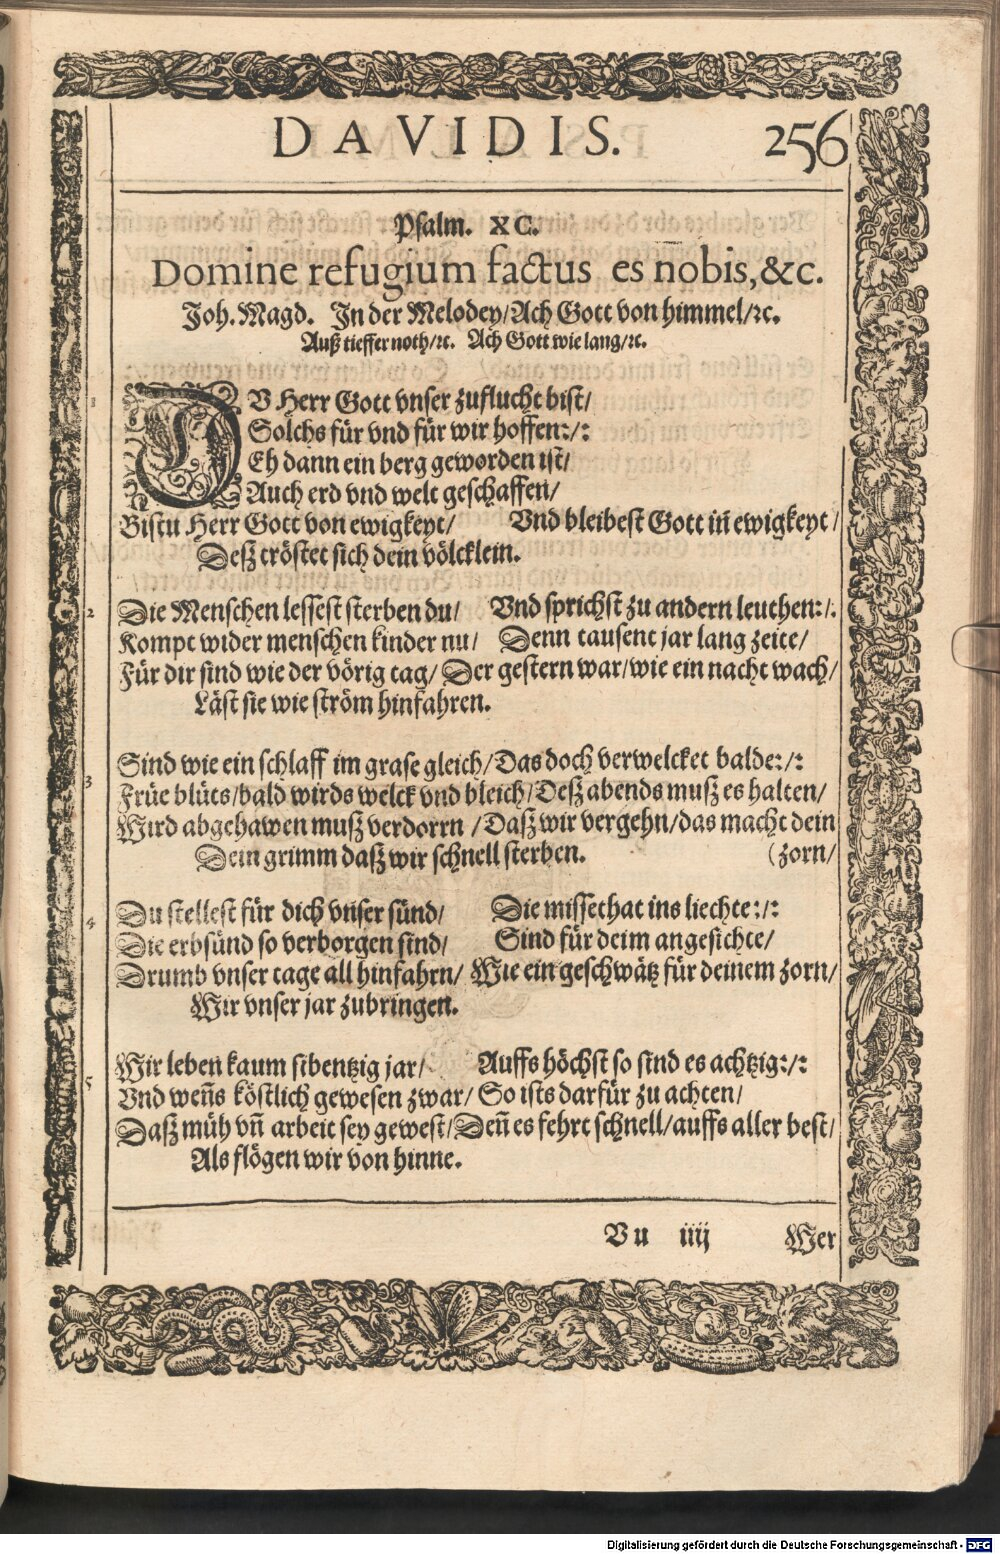 DAVIDIS. 256
Psalm. XC.
Domine refugium factus es nobis, &c.
Joh. Magd. In der Melodey/ Ach Gott von himmel/ ꝛc.
Auß tieffer noth/ ꝛc. Ach Gott wie lang/ ꝛc.
1 DV Herr Gott vnser zuflucht bist/
Solchs für vnd für wir hoffen:/:
Eh dann ein berg geworden ist/
Auch erd vnd welt geschaffen/
Bistu Herr Gott von ewigkeyt/ Vnd bleibest Gott in̄ ewigkeyt/
Deß tröstet sich dein völcklein.
2 Die Menschen lessest sterben du/ Vnd sprichst zu andern leuthen:/.
Kompt wider menschen kinder nu/ Denn tausent jar lang zeite/
Für dir sind wie der vörig tag/ Der gestern war/ wie ein nacht wach/
Läst sie wie ström hinfahren.
Sind wie ein schlaff im grase gleich/ Das doch verwelcket balde:/:
3 Früe blüts/ bald wirds welck vnd bleich/ Deß abends muß es halten/
Wird abgehawen muß verdorrn/ Daß wir vergehn/ das macht dein
Dein grimm daß wir schnell sterben. (zorn/
4 Du stellest für dich vnser sünd/ Die missethat ins liechte:/:
Die erbsünd so verborgen sind/ Sind für deim angesichte/
Drumb vnser tage all hinfahrn/ Wie ein geschwätz für deinem zorn/
Wir vnser jar zubringen.
5 Wir leben kaum sibentzig jar/ Auffs höchst so sind es achtzig:/:
Vnd wen̄s köstlich gewesen zwar/ So ists darfür zu achten/
Daß müh vn̄ arbeit sey gewest/ Den̄ es fehrt schnell/ auffs aller best/
Als flögen wir von hinne.
Vu iiij Wer
Digitalisierung gefördert durch die Deutsche Forschungsgemeinschaft - DFG